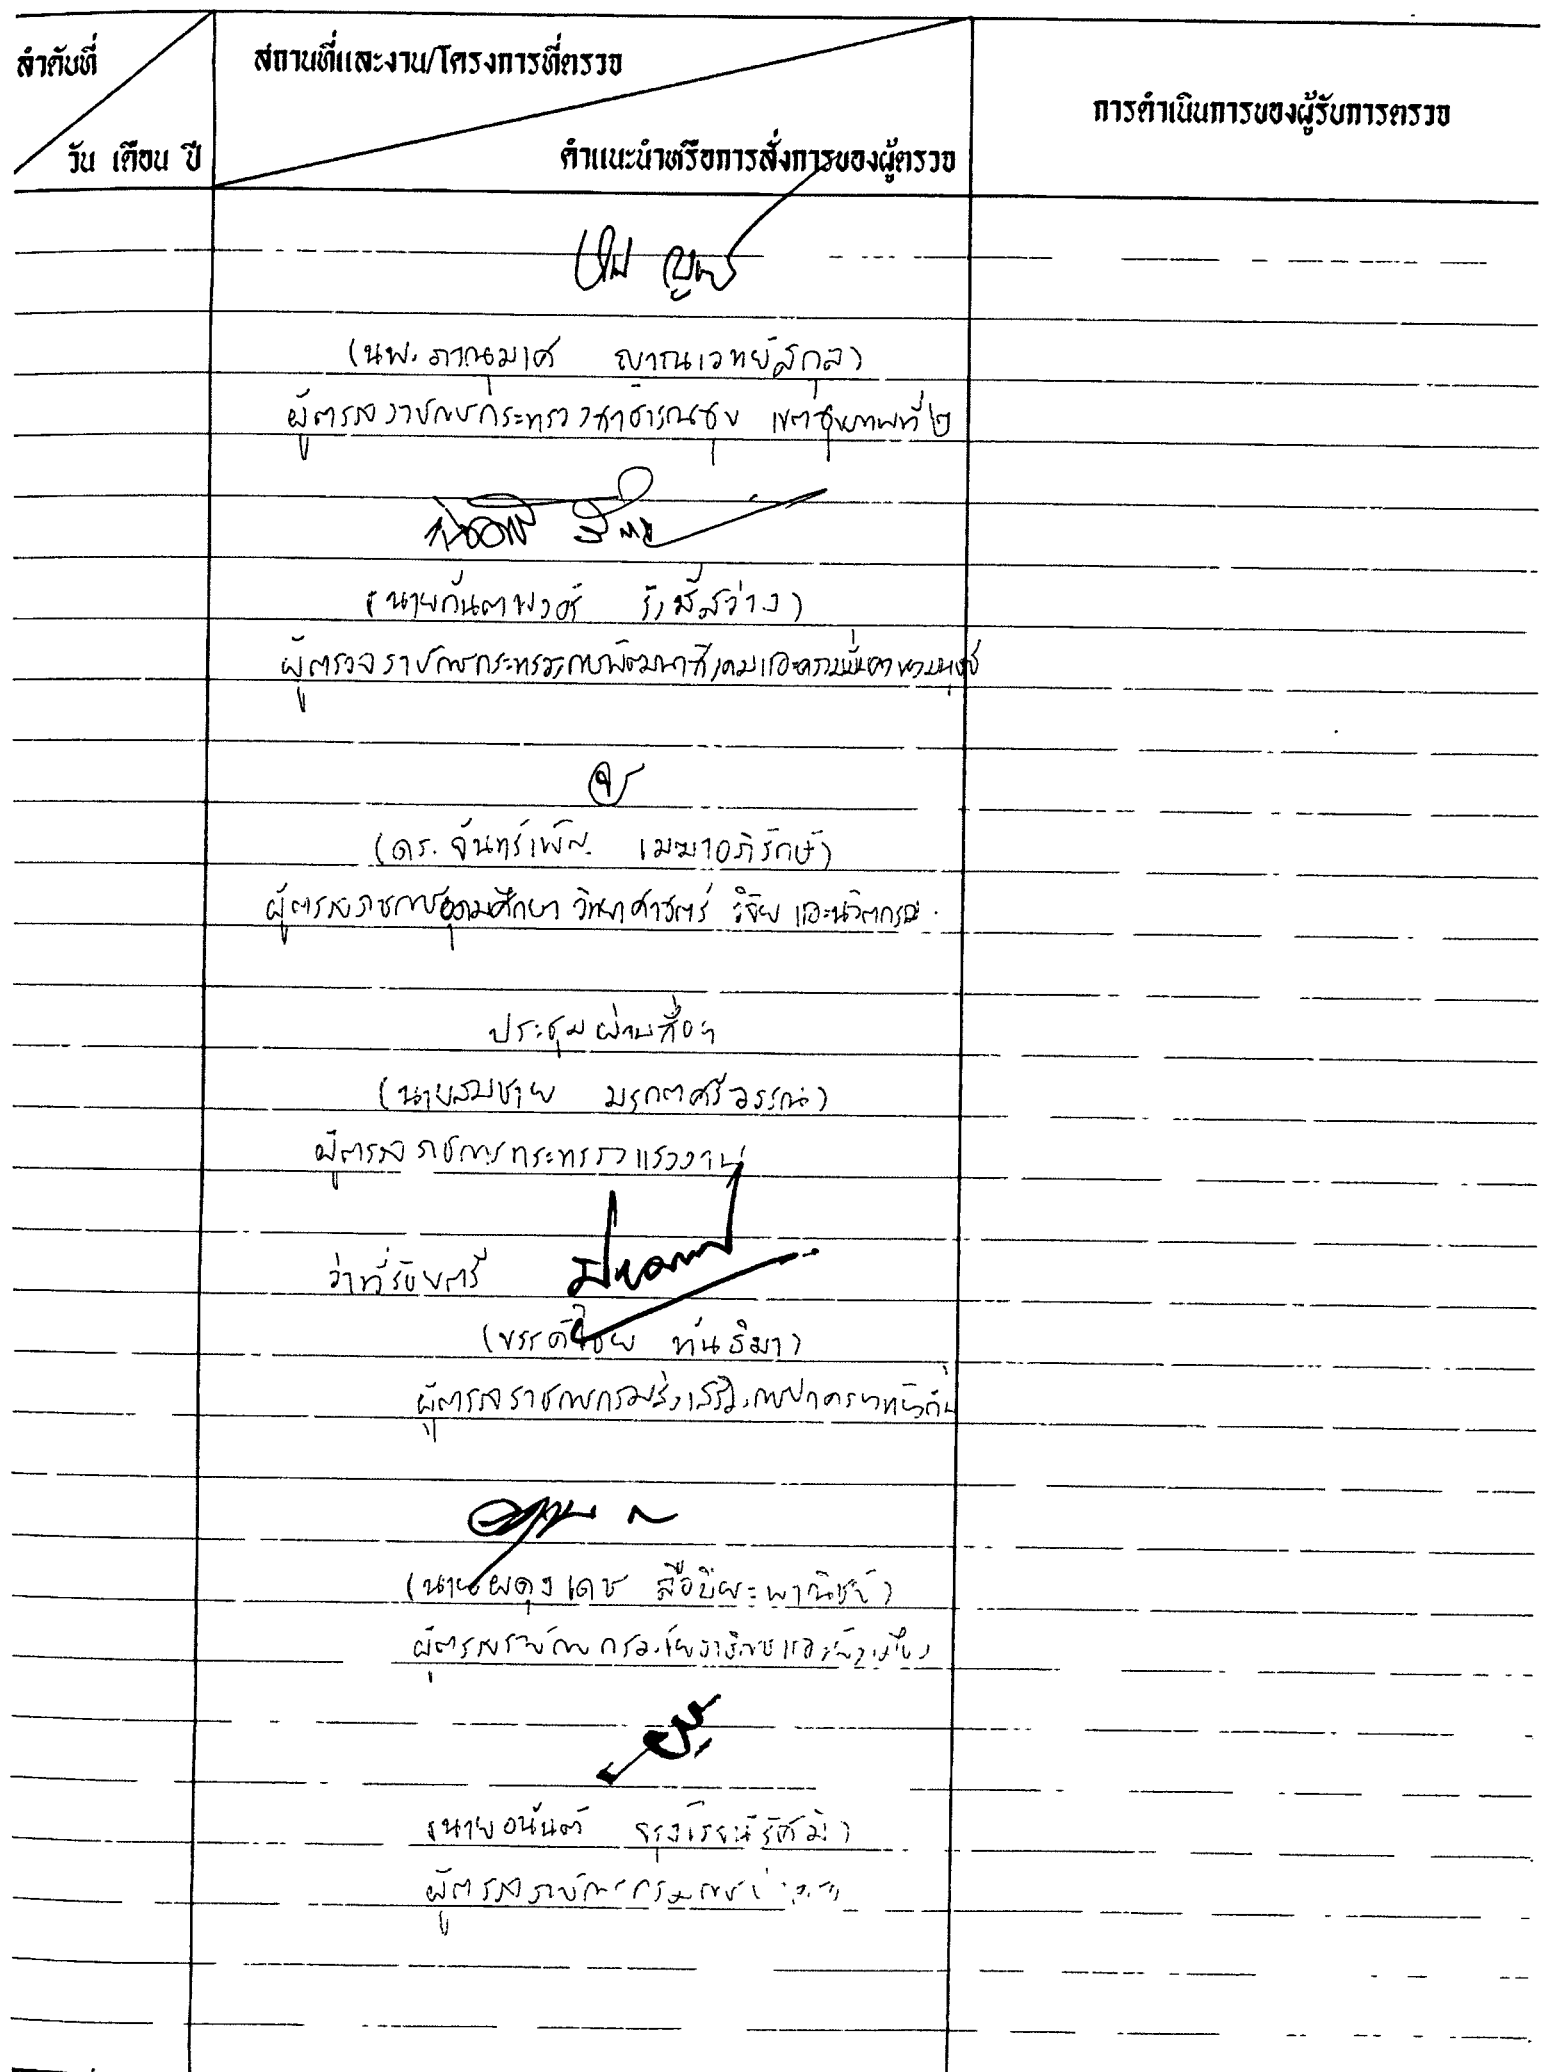 ลำดับที่
วัน เดือน ปี
สถานที่และงาน/โครงการที่ตรวจ
คำแนะนำหรือการสั่งการของผู้ตรวจ
การดำเนินการของผู้รับการตรวจ
(นพ. ภาณุมาศ ญาณเวทย์สกุล)
ผู้ตรวจราชการกระทรวงสาธารณสุข เขตสุขภาพที่ ๒
(นายกันตพงศ์ รังษีสว่าง)
ผู้ตรวจราชการกระทรวงการพัฒนาสังคมและความมั่นคงของมนุษย์
(ดร. จันทร์เพ็ญ เมฆาอภิรักษ์)
ผู้ตรวจราชการอุดมศึกษา วิทยาศาสตร์ วิจัย และนวัตกรรม
ประชุมผ่านสื่อฯ
(นายสมชาย มรกตศรีวรรณ)
ผู้ตรวจราชการกระทรวงแรงงาน
ว่าที่ร้อยตรี
(ขรรค์ไชย ทันธิมา)
ผู้ตรวจราชการกรมส่งเสริมการปกครองท้องถิ่น
(นายผดุงเดช ลือปิยะพาณิชย์)
ผู้ตรวจราชการกรมโยธาธิการและผังเมือง
(นายอนันต์ จรุงโรจน์รัศมี)
ผู้ตรวจราชการกรม